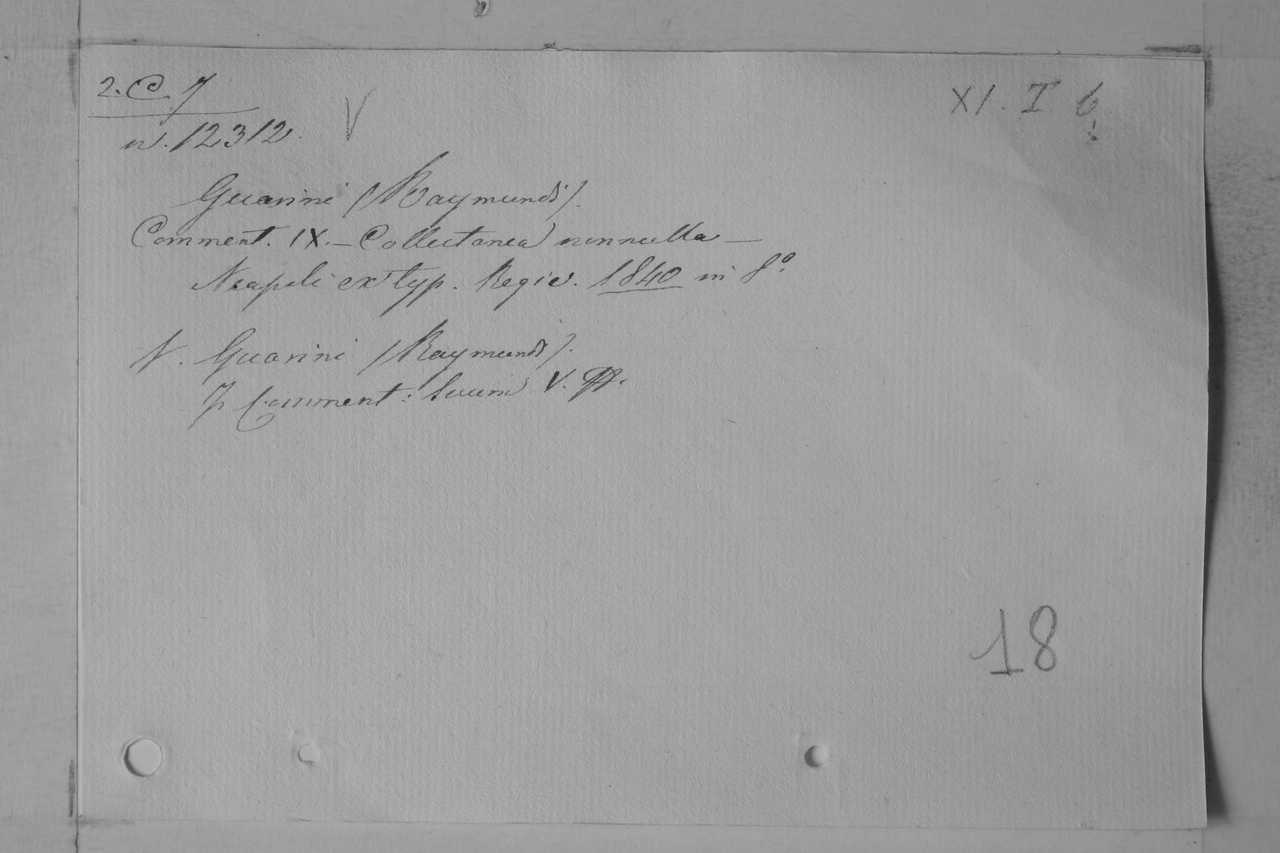 2. C. 7
XI. I 6
n. 12312. V
Guarini (Raymundi).
Comment. IX. – Collectanea nonnulla –
Neapoli ex typ. Regia. 1840 in 8º.
V. Guarini (Raymundi).
Comment: V.
18